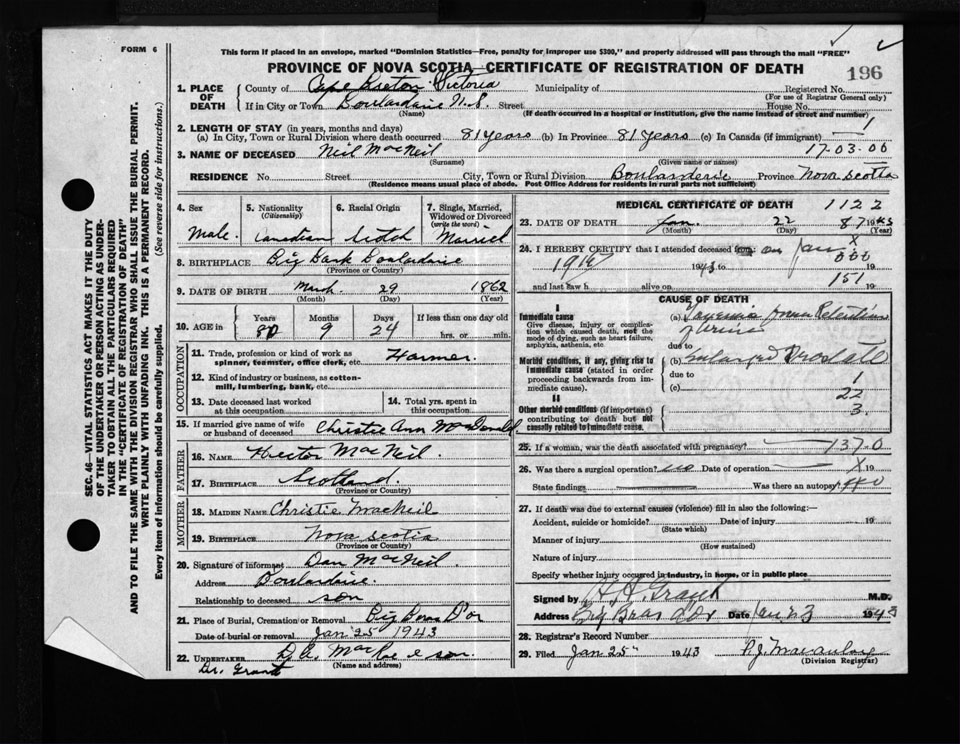 FORM 6
This form if placed in an envelope, marked "Dominion Statistics—Free, penalty for improper use $300," and properly addressed will pass through the mail "FREE"
PROVINCE OF NOVA SCOTIA—CERTIFICATE OF REGISTRATION OF DEATH
196
SEC. 46—VITAL STATISTICS ACT MAKES IT THE DUTY
OF THE UNDERTAKER OR PERSON ACTING AS UNDER-
TAKER TO OBTAIN ALL THE PARTICULARS REQUIRED
IN THE "CERTIFICATE OF REGISTRATION OF DEATH"
AND TO FILE THE SAME WITH THE DIVISION REGISTRAR WHO SHALL ISSUE THE BURIAL PERMIT.
WRITE PLAINLY WITH UNFADING INK. THIS IS A PERMANENT RECORD.
Every item of Information should be carefully supplied. (See reverse side for instructions.)
1. PLACE OF DEATH
County of Cape Breton Victoria Municipality of Registered No.
(For use of Registrar General only)
If in City or Town Boulardarie N.S. Street House No.
(Name) (If death occurred in a hospital or institution, give the name instead of street and number)
2. LENGTH OF STAY (in years, months and days)
(a) In City, Town or Rural Division where death occurred 81 years (b) In Province 81 years (c) In Canada (if immigrant) 1
3. NAME OF DECEASED Neil MacNeil 17-03.00
(Surname) (Given name or names)
RESIDENCE No. Street City, Town or Rural Division Boularderie Province Nova Scotia
(Residence means usual place of abode. Post Office Address for residents in rural parts not sufficient)
4. Sex
Male.
5. Nationality
(Citizenship)
Canadian
6. Racial Origin
Scotch
7. Single, Married,
Widowed or Divorced
(write the word)
Married
8. BIRTHPLACE Big Bank Boulardarie
(Province or Country)
9. DATE OF BIRTH March 29 1862
(Month) (Day) (Year)
10. AGE in
Years Months Days If less than one day old
80 9 24 hrs. or min.
OCCUPATION
11. Trade, profession or kind of work as
spinner, teamster, office clerk, etc. Farmer.
12. Kind of industry or business, as cotton-
mill, lumbering, bank, etc.
13. Date deceased last worked
at this occupation
14. Total yrs. spent in
this occupation
15. If married give name of wife
or husband of deceased Christie Ann McDonald
FATHER
16. NAME Hector MacNeil.
17. BIRTHPLACE Scotland.
(Province or Country)
MOTHER
18. MAIDEN NAME Christie MacNeil
19. BIRTHPLACE Nova Scotia
(Province or Country)
20. Signature of informant Dan MacNeil.
Address Boulardarie.
Relationship to deceased son
21. Place of Burial, Cremation or Removal Big Bras D'or
Date of burial or removal Jan 25" 1943
22. UNDERTAKER
(Name and address)
Dr. Grant
MEDICAL CERTIFICATE OF DEATH 1122
23. DATE OF DEATH Jan. 22 87 1943
(Month) (Day) (Year)
24. I HEREBY CERTIFY that I attended deceased from on Jan x
19th 1943 to 000 19
and last saw h alive on 151 19
CAUSE OF DEATH
Immediate cause
Give disease, injury or complica-
tion which caused death, not the
mode of dying, such as heart failure,
asphyxia, asthenia, etc.
Morbid conditions, if any, giving rise to
immediate cause (stated in order
proceeding backwards from im-
mediate cause).
II
Other morbid conditions (if important)
contributing to death but not
causally related to immediate cause.
(a) from Retention
of Urine
due to
(b) Enlarged Prostate
due to
(c) 1
22
3.
25. If a woman, was the death associated with pregnancy? 137.0
26. Was there a surgical operation? no Date of operation x 19
State findings Was there an autopsy? no
27. If death was due to external causes (violence) fill in also the following:—
Accident, suicide or homicide? Date of injury 19
(State which)
Manner of injury
(How sustained)
Nature of injury
Specify whether injury occurred in industry, in home, or in public place
Signed by H.A. Grant M.D.
Address Big Bras d'Or Date Jan 23 1943
28. Registrar's Record Number
29. Filed Jan 25" 1943 P.J. Macaulay
(Division Registrar)